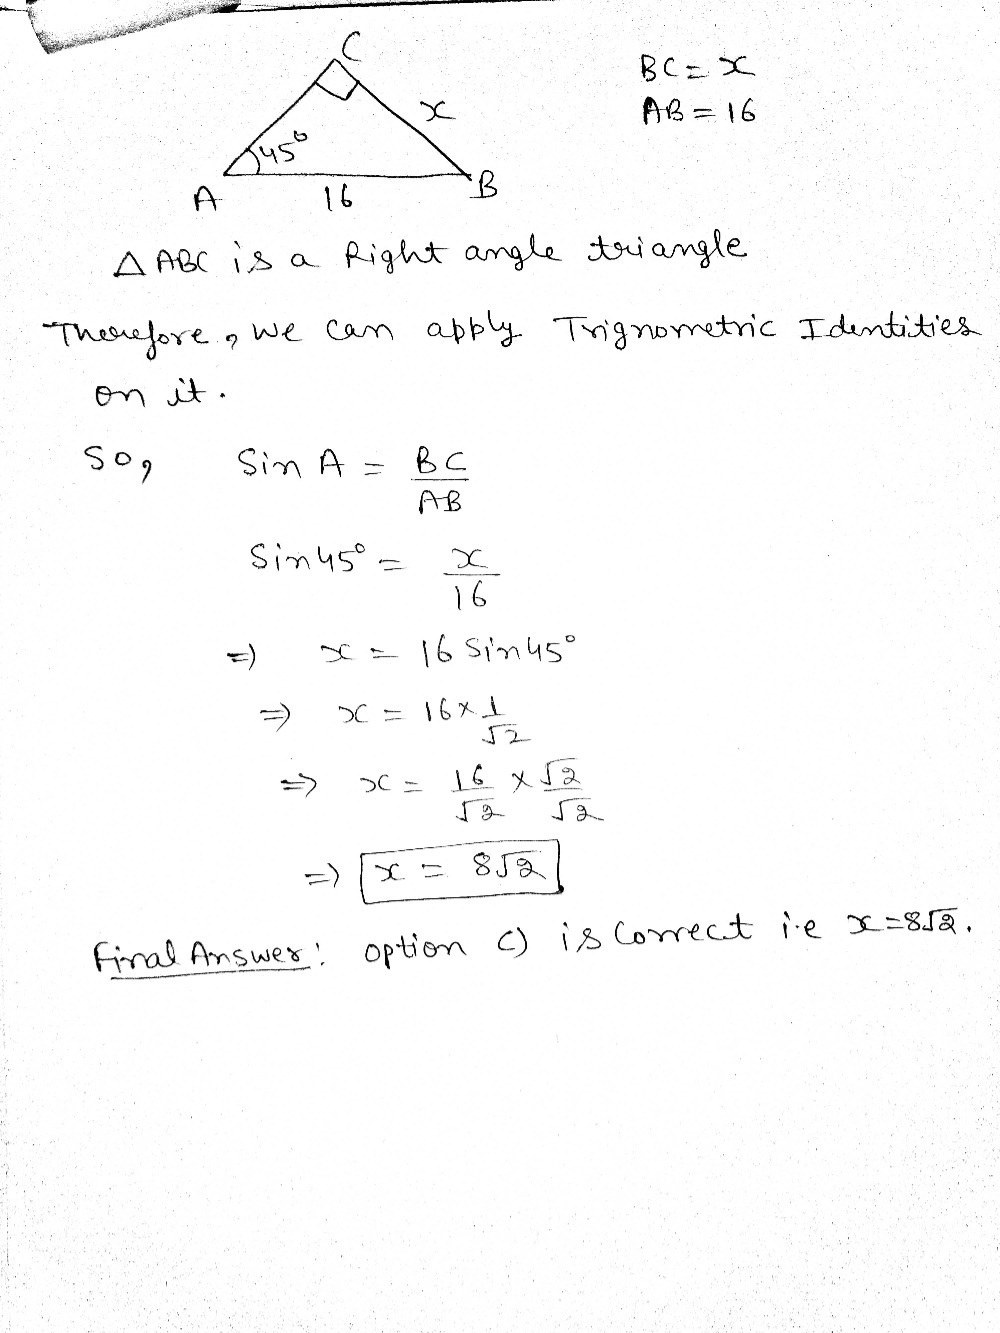 C
BC = x
x
AB = 16
45°
A
16
B
△ ABC is a Right angle triangle
Therefore, we can apply Trignometric Identities
on it.
So, Sin A = BC/AB
Sin 45° = x/16
=) x = 16 Sin 45°
=> x = 16 × 1/√2
=> x = 16/√2 × √2/√2
=) x = 8√2
Final Answer: option c) is Correct i.e x = 8√2.